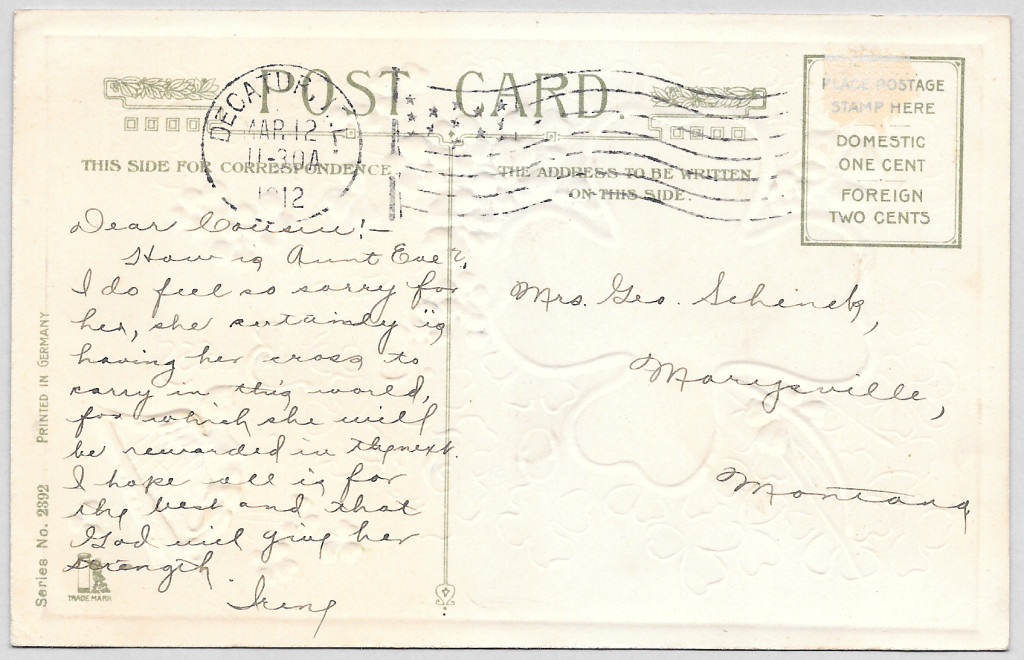 POST CARD.
DECATUR, ILL.
MAR 12
11-30A
1912
THIS SIDE FOR CORRESPONDENCE.
THE ADDRESS TO BE WRITTEN
ON THIS SIDE.
PLACE POSTAGE
STAMP HERE
DOMESTIC
ONE CENT
FOREIGN
TWO CENTS
Dear Cousin!—
How is Aunt Eve?,
I do feel so sorry for
her, she certainly is
having her cross to
carry in this world,
for which she will
be rewarded in the next.
I hope all is for
the best and that
God will give her
strength.
Irene
Mrs. Geo. Schenck,
Marysville,
Montana
Series No. 2392 PRINTED IN GERMANY
TRADE MARK